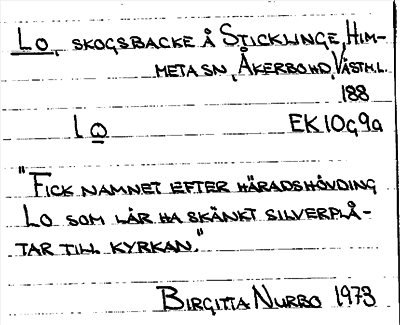 Lo, SKOGSBACKE Å STICKLINGE, HIM-
META SN, ÅKERBO HD, VÄSTM.L.
188
lo EK10g9a
"FICK NAMNET EFTER HÄRADSHÖVDING
LO SOM LÄR HA SKÄNKT SILVERPLÅ-
TAR TILL KYRKAN."
BIRGITTA NURBO 1973